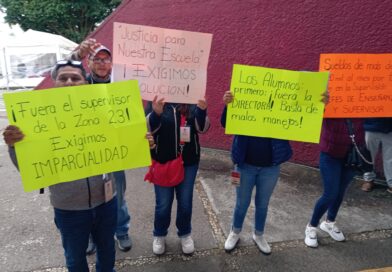 ¡Fuera el supervisor
de la Zona 23!
Exigimos
IMPARCIALIDAD
"Justicia para
Nuestra Escuela"
¡EXIGIMOS
SOLUCIÓN!
Los Alumnos
primero; ¡fuera la
DIRECTORA! Basta de
malos manejos!
Sueldos de más de
mil al mes por
en la
FES DE ENSEÑ
Y SUPERVISOR